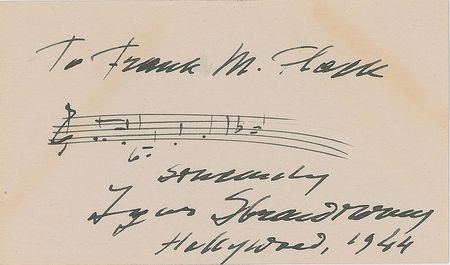 To Frank M.
sincerely
Igor Strawinsky
Hollywood, 1944